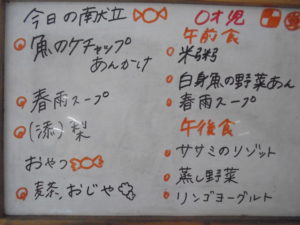 今日の献立
魚のケチャップ
あんかけ
春雨スープ
(添)梨
おやつ
麦茶,おじや
0才児
午前食
米粥
白身魚の野菜あん
春雨スープ
午後食
ササミのリゾット
蒸し野菜
リンゴヨーグルト